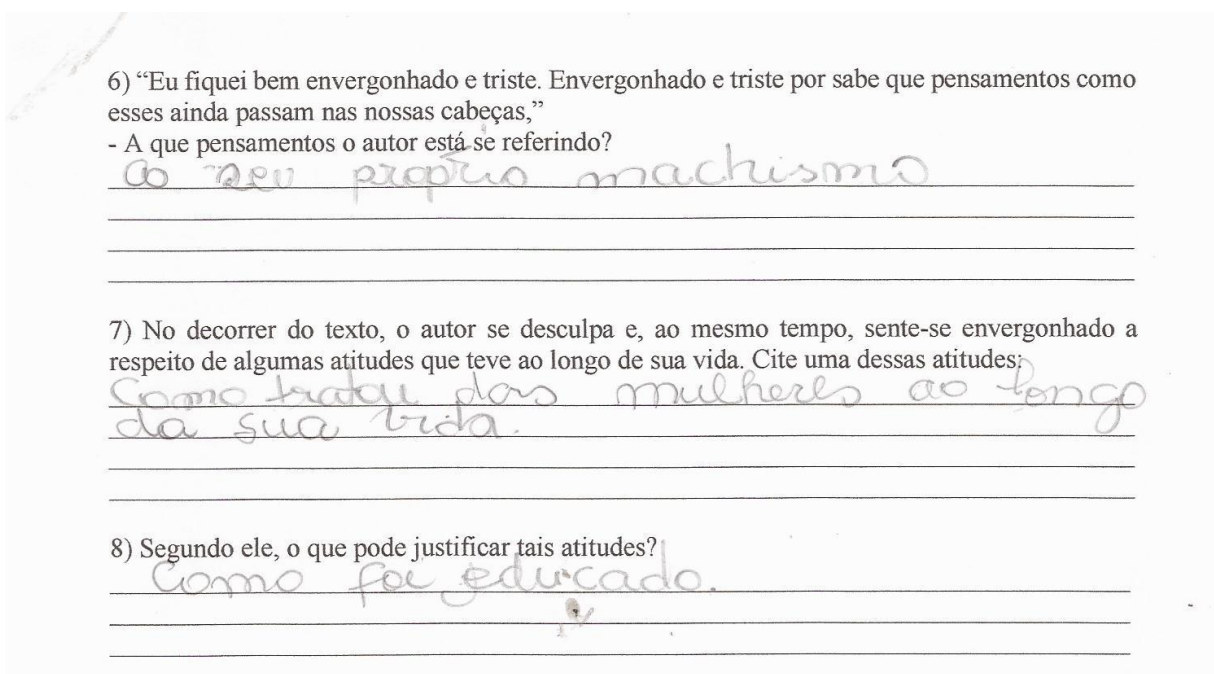 6) “Eu fiquei bem envergonhado e triste. Envergonhado e triste por sabe que pensamentos como
esses ainda passam nas nossas cabeças,”
- A que pensamentos o autor está se referindo?
ao seu próprio machismo
7) No decorrer do texto, o autor se desculpa e, ao mesmo tempo, sente-se envergonhado a
respeito de algumas atitudes que teve ao longo de sua vida. Cite uma dessas atitudes:
Como tratou das mulheres ao longo
da sua vida.
8) Segundo ele, o que pode justificar tais atitudes?
Como foi educado.